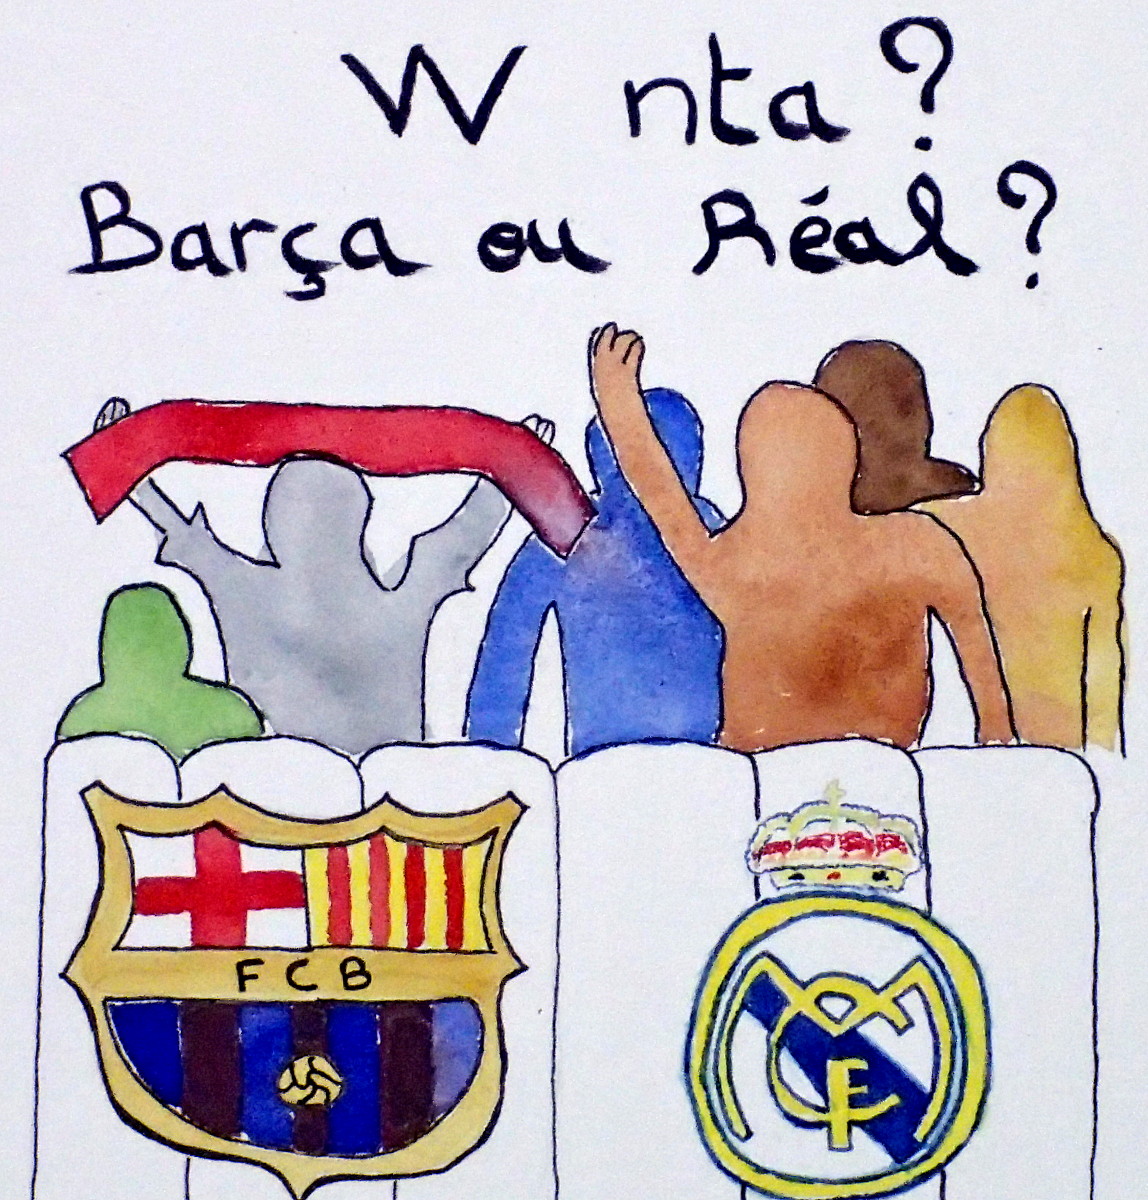 W nta ?
Barça ou Réal ?
FCB